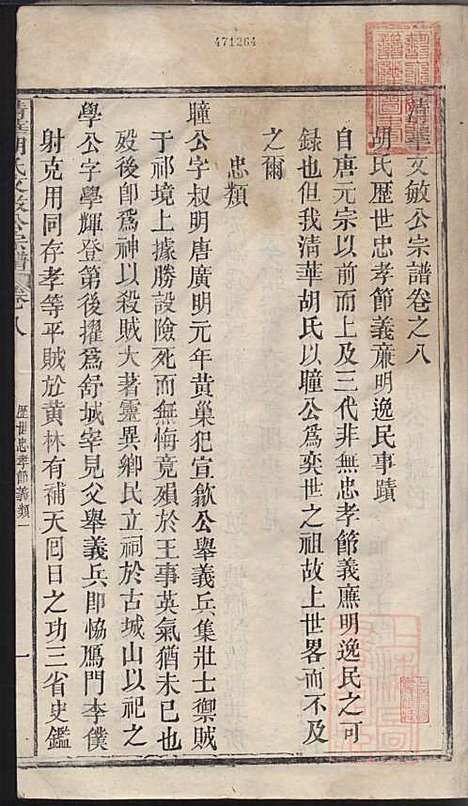 471264
清華文敏公宗譜卷之八
胡氏歷世忠孝節義廉明逸民事蹟
自唐元宗以前而上及三代非無忠孝節義廉明逸民之可
錄也但我清華胡氏以瞳公爲奕世之祖故上世畧而不及
之爾
忠類
瞳公字叔明唐廣明元年黃巢犯宣歙公舉義兵集壯士禦賊
于祁境上據勝設險死而無悔竟殞於王事英氣猶未已也
歿後卽爲神以殺賊大著靈異鄉民立祠於古城山以祀之
學公字學輝登第後擢爲舒城宰見父舉義兵卽恊鴈門李僕
射克用同存孝等平賊於黃林有補天囘日之功三省史鑑
清華胡氏文敏公宗譜 卷八
歷世忠孝節義類
一